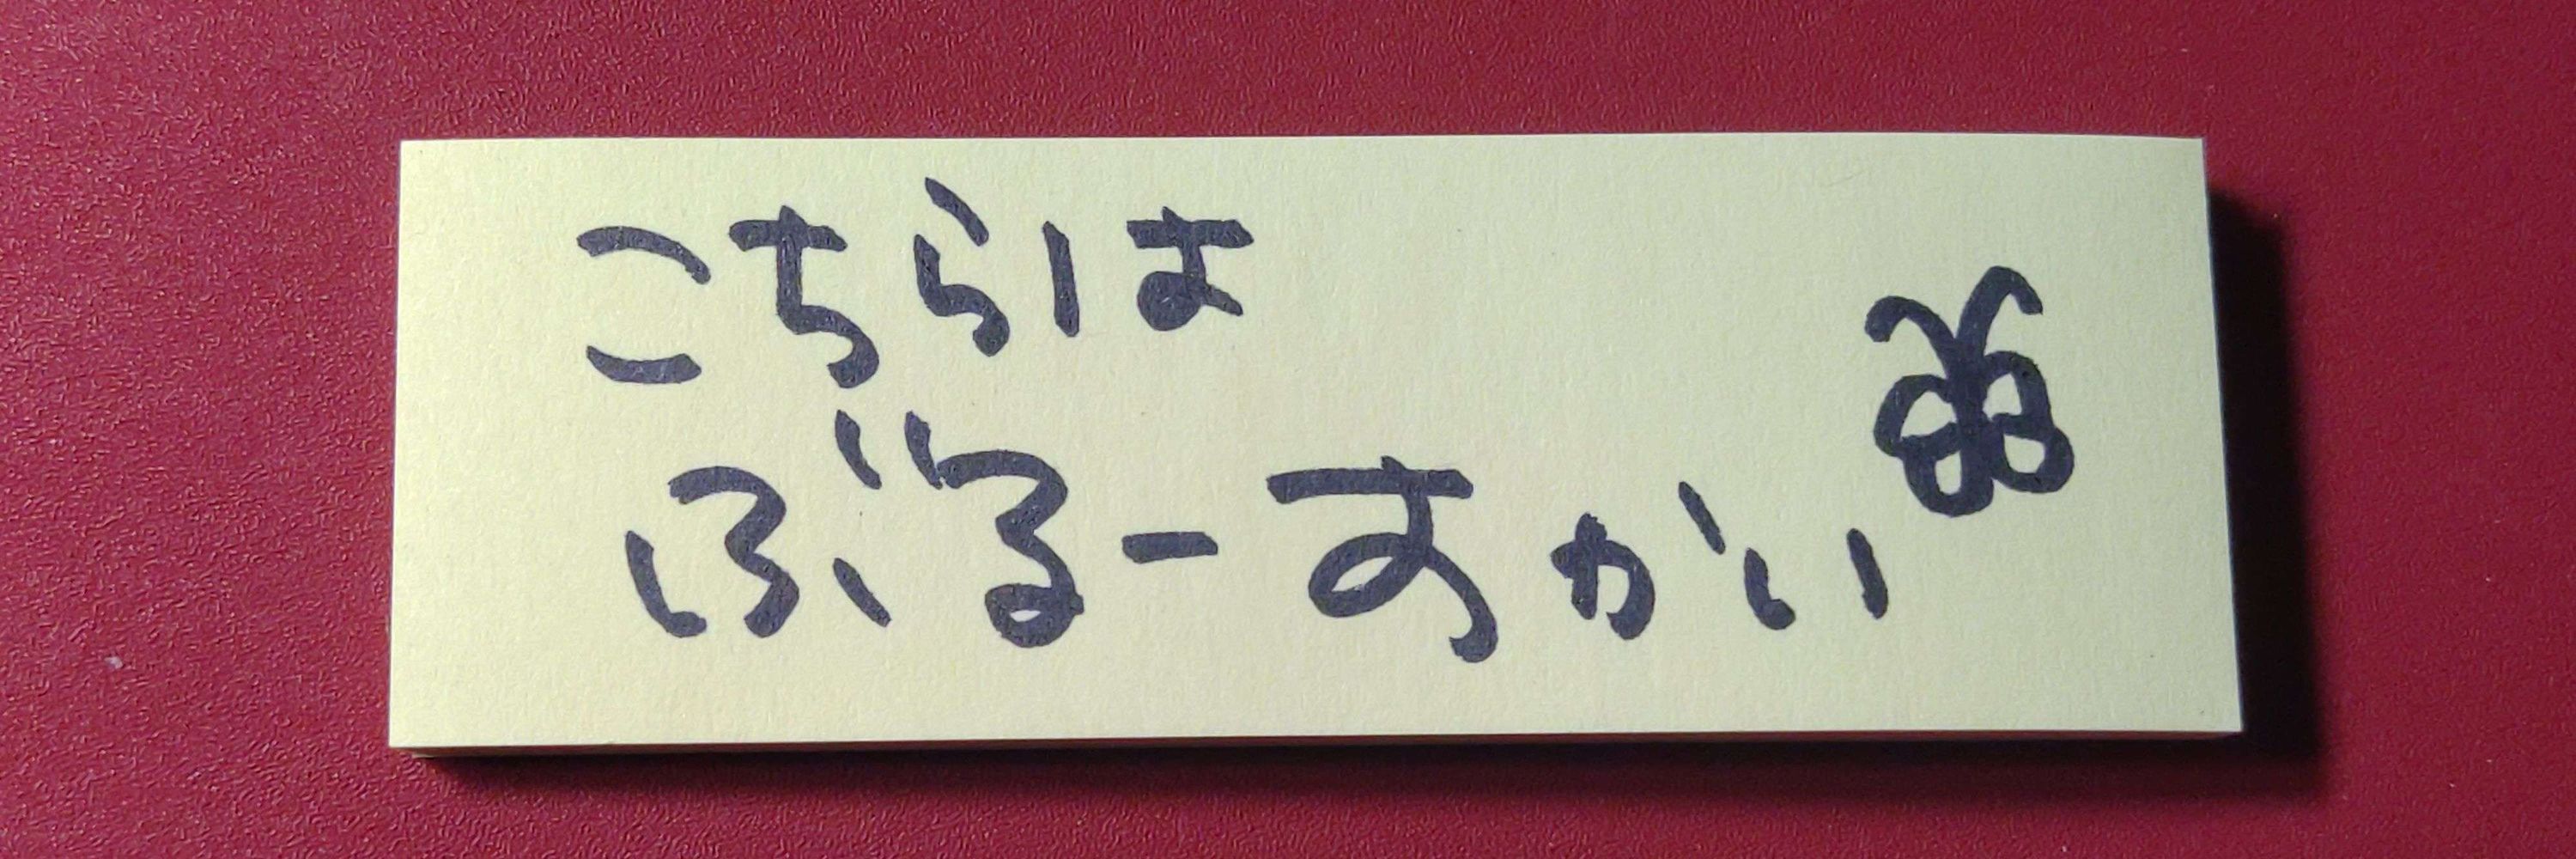 こちらは
ぶるーすかい